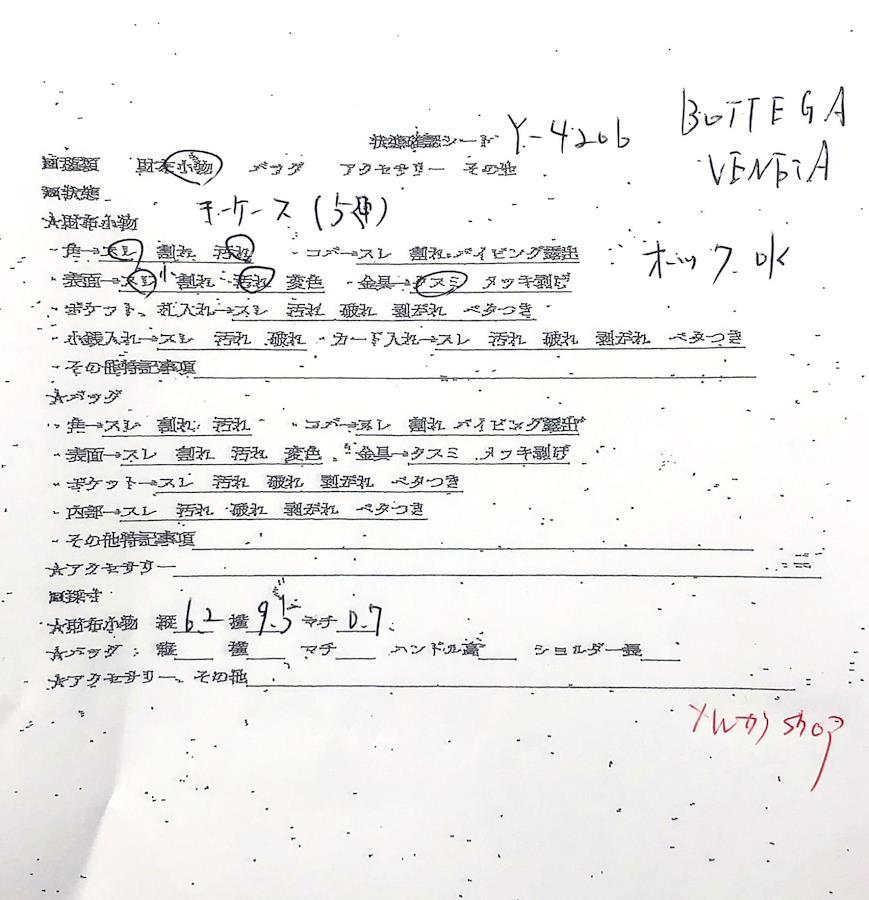 状態確認シート Y-4206 BOTTEGA
VENETA
■種類 財布小物 バッグ アクセサリー その他
■状態
キーケース (5連)
☆財布小物
・角→スレ 割れ 汚れ ・コバ→スレ 割れ パイピング露出
ホック OK
・表面→スレ 小 割れ 汚れ 変色 ・金具→クスミ メッキ剥げ
・ポケット、札入れ→スレ 汚れ 破れ 剥がれ ベタつき
・小銭入れ→スレ 汚れ 破れ ・カード入れ→スレ 汚れ 破れ 剥がれ ベタつき
・その他特記事項
☆バッグ
・角→スレ 割れ 汚れ ・コバ→スレ 割れ パイピング露出
・表面→スレ 割れ 汚れ 変色 ・金具→クスミ メッキ剥げ
・ポケット→スレ 汚れ 破れ 剥がれ ベタつき
・内部→スレ 汚れ 破れ 剥がれ ベタつき
・その他特記事項
☆アクセサリー
■採寸
☆財布小物 縦 6.2 横 9.5 マチ 0.7
☆バッグ 縦 横 マチ ハンドル高 ショルダー長
☆アクセサリー、その他
shop